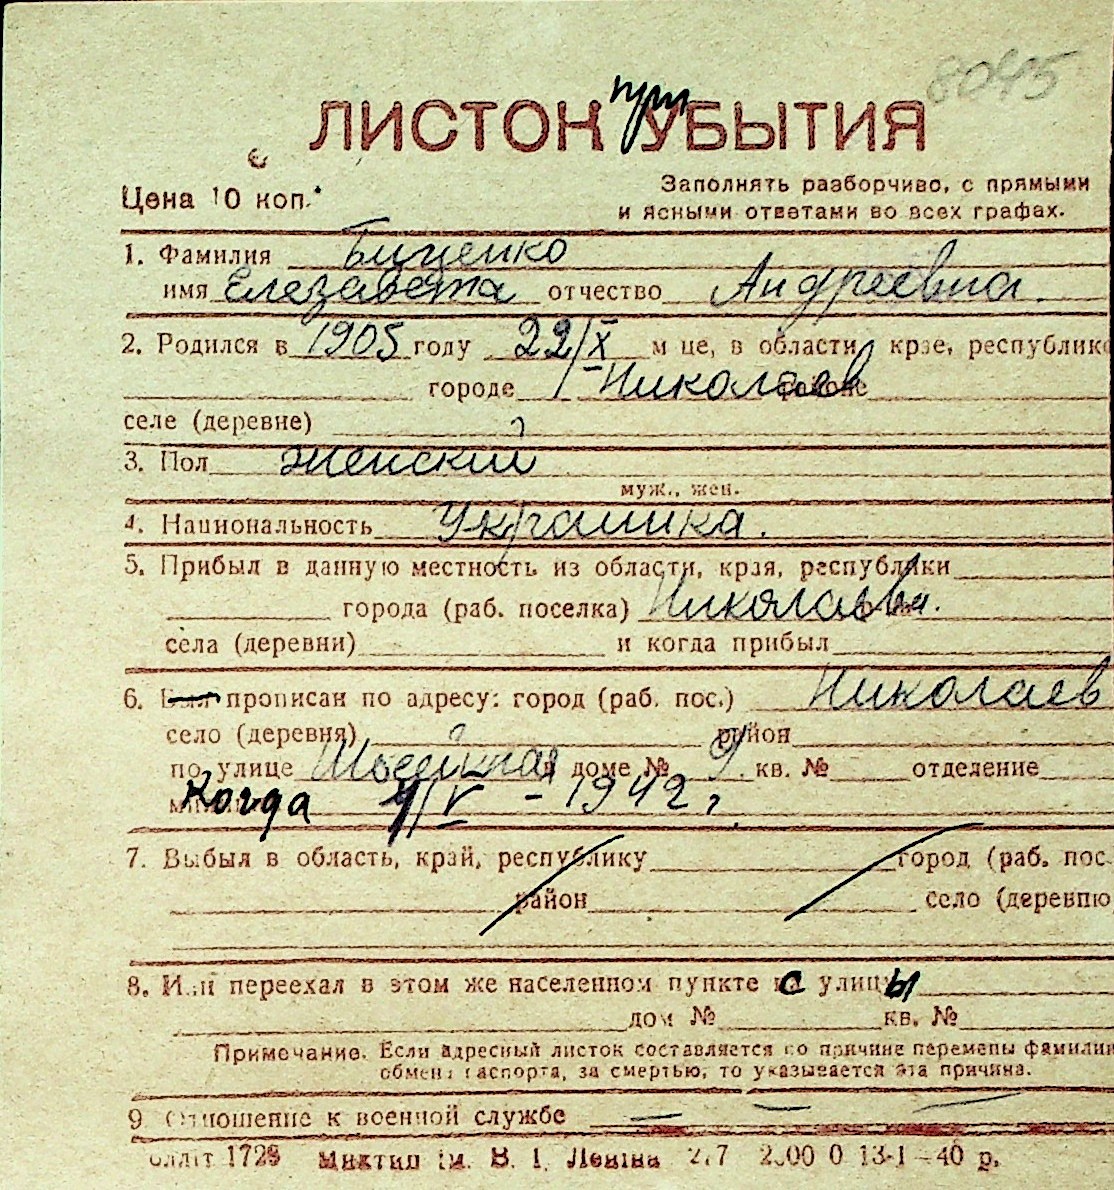 8045
при
ЛИСТОК УБЫТИЯ
Цена 10 коп.
Заполнять разборчиво, с прямыми
и ясными ответами во всех графах.
1. Фамилия Биценко
имя Елезавета отчество Андреевна.
2. Родился в 1905 году 22/X м-це, в области, крае, республике
городе г-Николаев районе
селе (деревне)
3. Пол женский
муж., жен.
4. Национальность Украинка.
5. Прибыл в данную местность из области, края, республики
города (раб. поселка) Николаева.
села (деревни) и когда прибыл
6. Был прописан по адресу: город (раб. пос.) Николаев
село (деревня) район
по улице доме № 9 кв. № отделение
Когда 4/V - 1942 г.
7. Выбыл в область, край, республику город (раб. пос.
район село (деревню
8. Или переехал в этом же населенном пункте с улицы
дом № кв. №
Примечание. Если адресный листок составляется по причине перемены фамилии
обмена паспорта, за смертью, то указывается эта причина.
9 Отношение к военной службе
1728 им. В. І. Леніна 13-1-40 р.